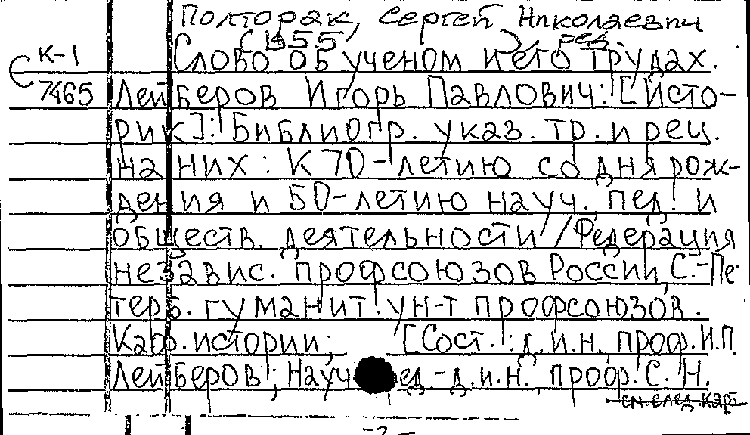 Полторак, Сергей Николаевич
(1955), ред.
К-1 Слово об ученом и его трудах.
7465 Лейберов Игорь Павлович: [Исто-
рик]: Библиогр. указ. тр. и рец.
на них: К 70-летию со дня рож-
дения и 50-летию науч. пед. и
обществ. деятельности / Федерация
независ. профсоюзов России, С.-Пе
терб. гуманит. ун-т профсоюзов.
Каф. истории; [Сост.: д.и.н. проф. И.П.
Лейберов; Науч. ред.-д.и.н. проф. С.Н.
см. след. кар